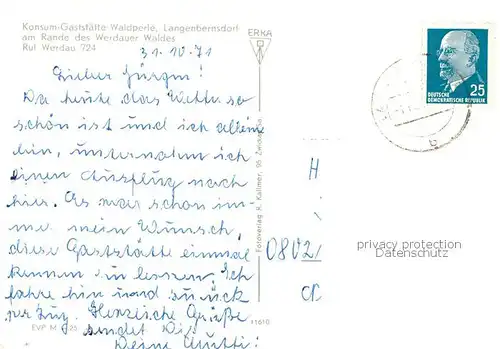 Konsum-Gaststätte Waldperle, Langenbernsdorf
am Rande des Werdauer Waldes
Ruf Werdau 724
31.10.71
Lieber Jürgen!
Da heute das Wetter so
schön ist und ich allein
bin, unternahm ich
einen Ausflug nach
hier. Es war schon im-
mer mein Wunsch,
diese Gaststätte einmal
kennen zu lernen. Ich
fahre hin und zurück
per Zug. Herzliche Grüße
sendet Dir
Deine Mutti!
EVP M 25
11610
ERKA
Fotoverlag R. Kallmer, 95 Zwickau
25
DEUTSCHE
DEMOKRATISCHE REPUBLIK
H
0802
privacy protection
Datenschutz